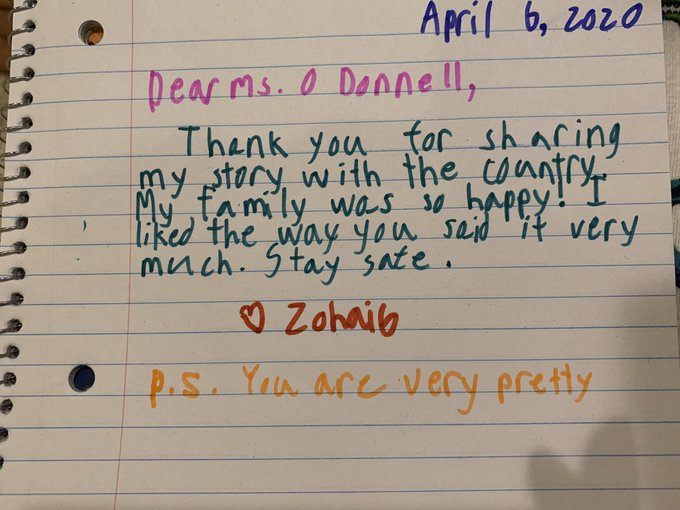 April 6, 2020
Dear ms. O Donnell,
Thank you for sharing
my story with the country.
My family was so happy! I
liked the way you said it very
much. Stay safe.
♡ Zohaib
p.s. You are very pretty